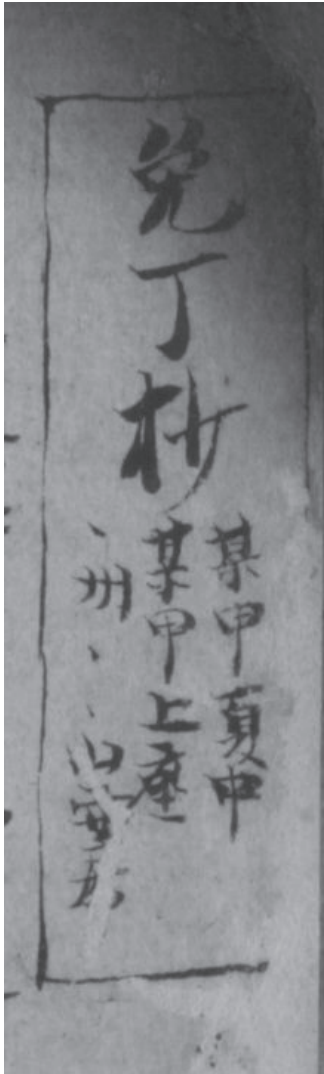 免丁抄
某甲夏中
某甲上座
、州、、山安